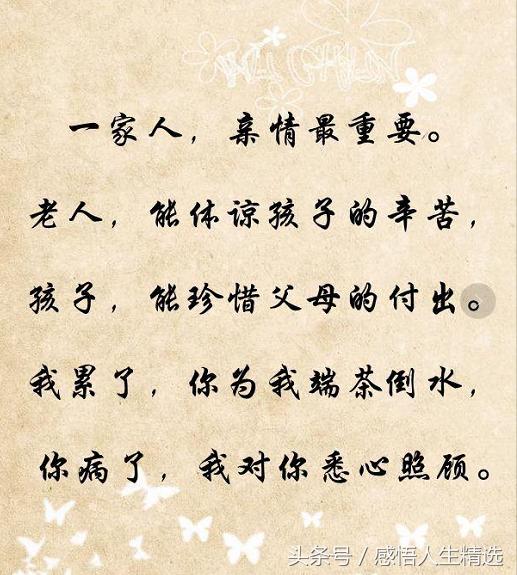 一家人，亲情最重要。
老人，能体谅孩子的辛苦，
孩子，能珍惜父母的付出。
我累了，你为我端茶倒水，
你病了，我对你悉心照顾。
头条号 / 感悟人生精选